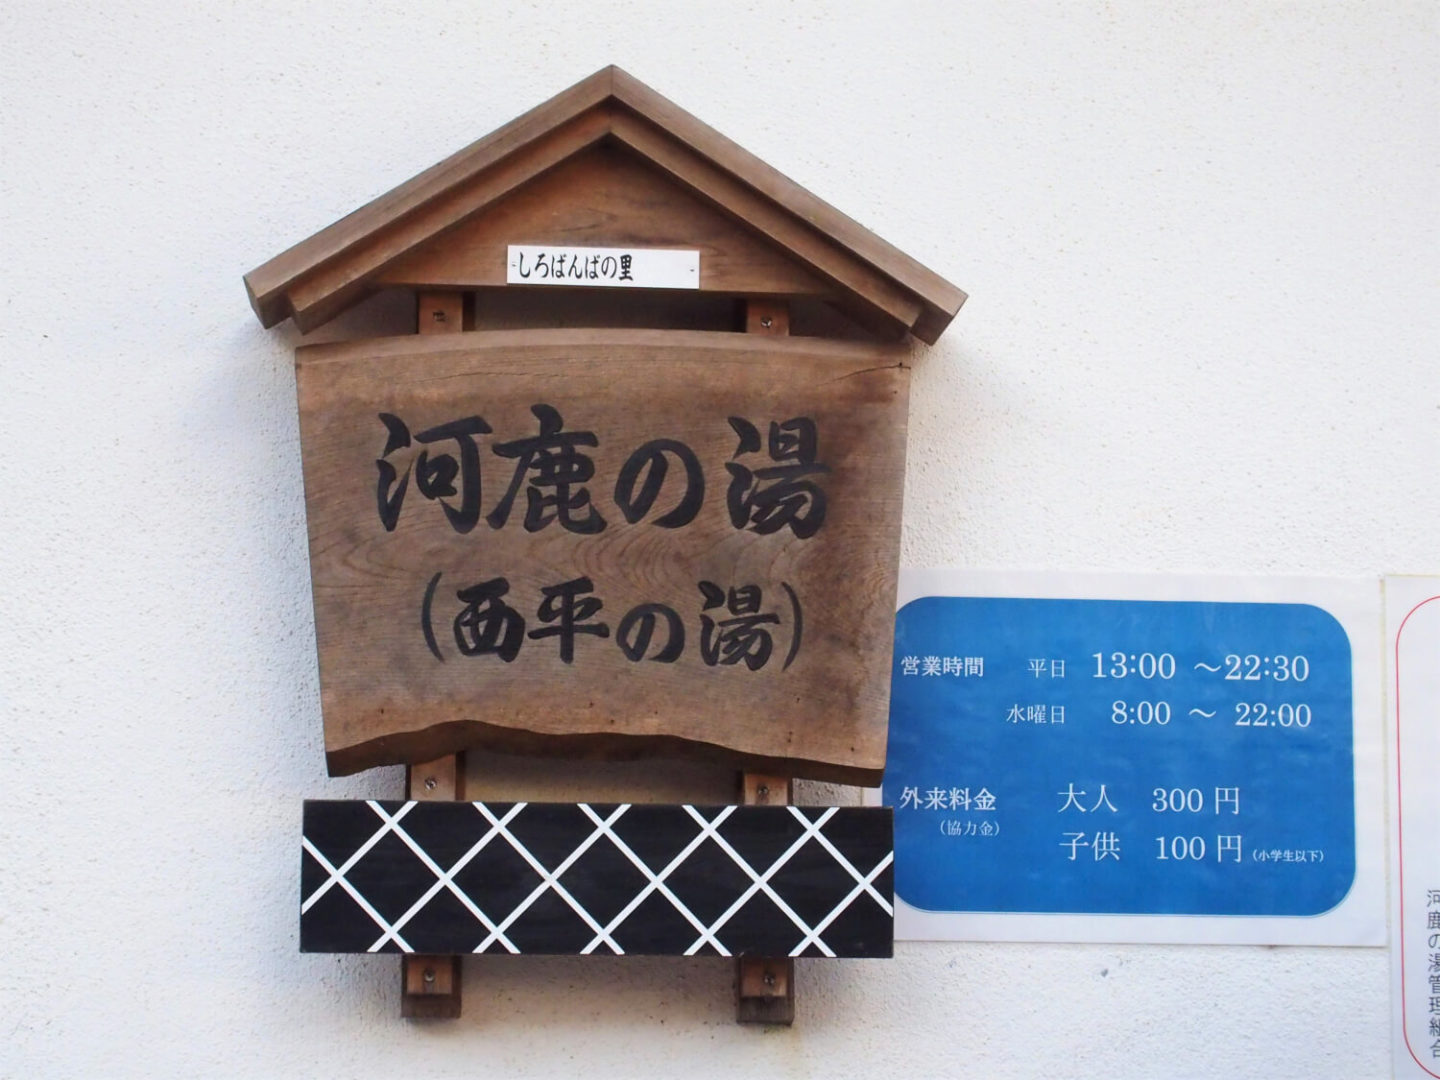 しろばんばの里
河鹿の湯
(西平の湯)
営業時間 平日 13:00 ～22:30
水曜日 8:00 ～ 22:00
外来料金 大人 300 円
(協力金)
子供 100 円 (小学生以下)
河鹿の湯管理組合